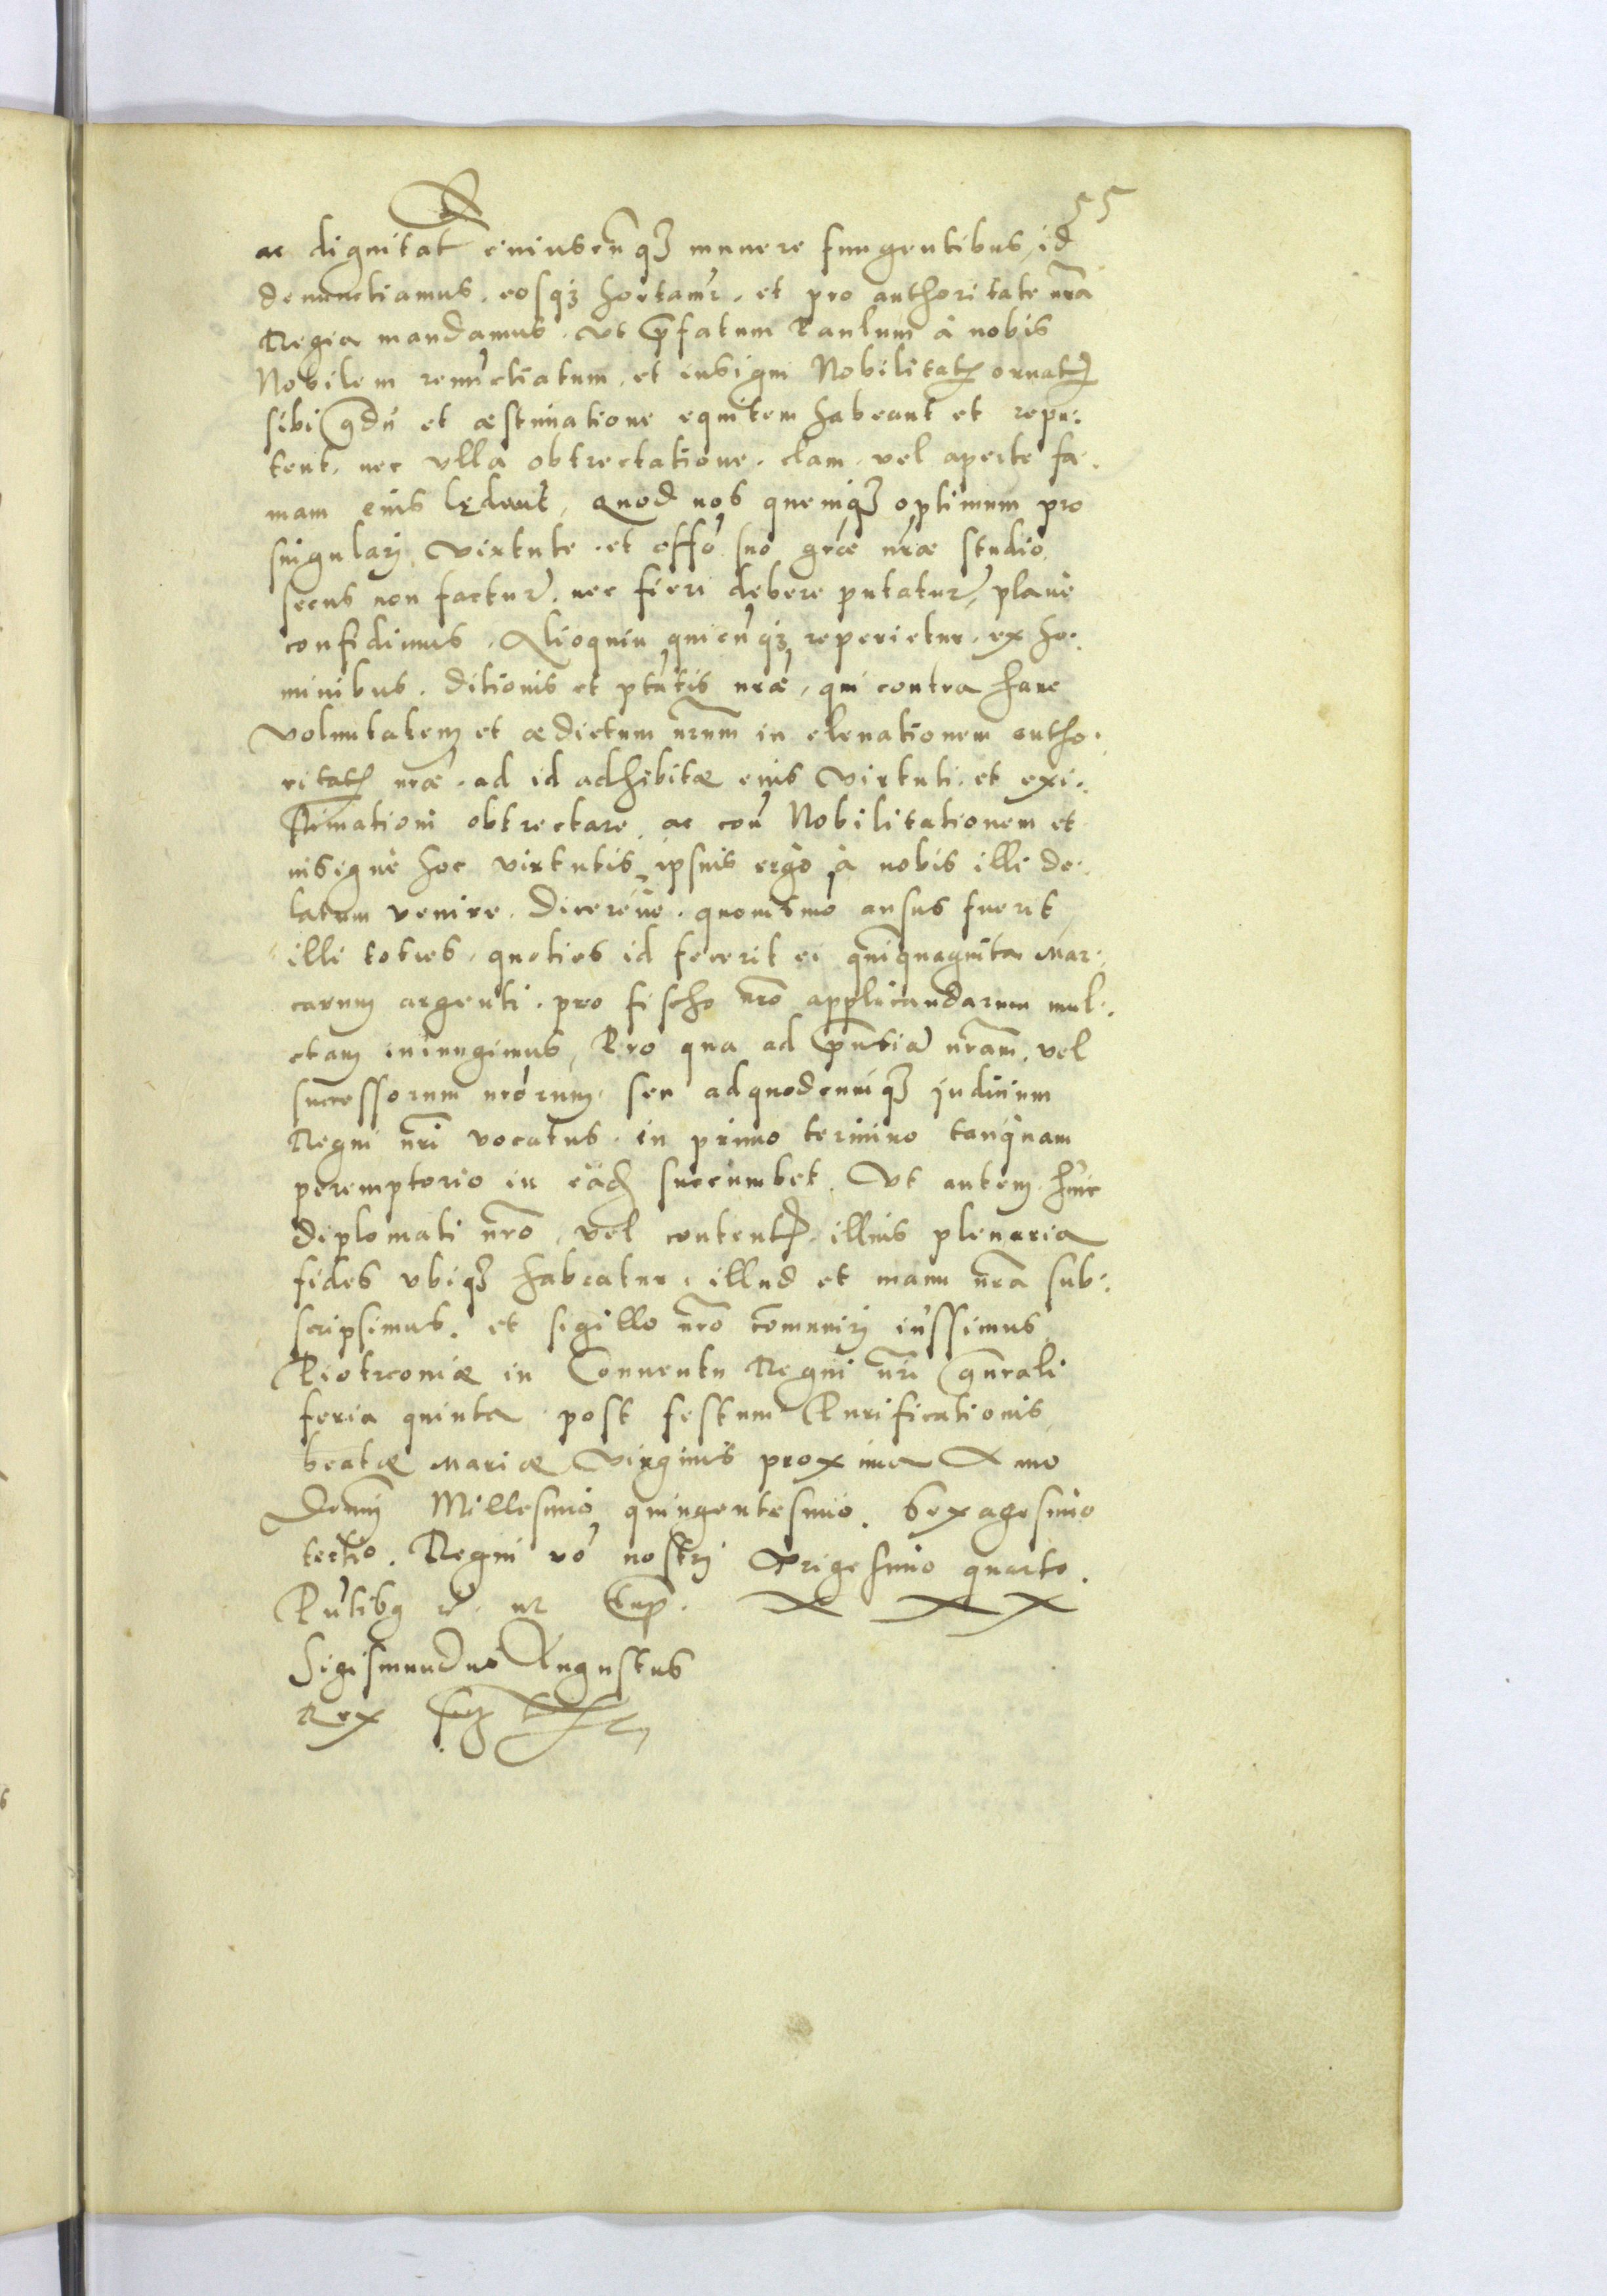 55
ac dignitat cuiuscūqȝ munere fungentibus, id
denunctiamus, eosqȝ hortamr, et pro authoritate nr̃a
Regia mandamus, ut p̃fatum Paulum à nobis
Nobilem renūctiatum, et insigni Nobilitatis ornatū
sibi et æstimatione equitem habeant et repu:
tent, nec ulla obtrectatione, clam, vel aperte fa:
mam eius lędant, Quod nos quemqȝ optimum pro
singulari virtute, et effō suo grãe nr̃æ studio
secus non factur̃, nec fieri debere putatur̃, planè
confidimus. Alioquin quicūqȝ reperietur, ex ho:
minibus, ditionis et ptũtis nr̃æ, qui contra hanc
voluntatem et ædictum nr̃um in eleuationem autho:
ritatis nr̃æ, ad id adhibitæ eius virtuti, et exi:
stimationi obtrectare, ac coñ Nobilitationem et
insigne hoc virtutis ipsius ergò à nobis illi de:
latum venire, dicereue, quouismo ausus fuerit
illi toties, quoties id fecerit ei quinquaginta Mar:
carum argenti, pro fischo nr̃o applicandarum mul:
ctam iniungimus, Pro qua ad p̃ntiã nr̃am, vel
successorum nr̃orum, seu ad quodcumqȝ judicium
Regni nr̃i vocatus, in primo termino tanquam
peremptorio in eãd succumbet. Ut autem huic
diplomati nr̃o, vel content illius plenaria
fides ubiqȝ habeatur, illud et manu nr̃a sub:
scripsimus, et sigillo nr̃o com̃uniri iussimus
Piotrcouiæ in Conuentu Regni nr̃i gñrali
feria quinta post festum Purificationis
beatæ Mariæ Virginis proxima Anno
Domȷ Millesimo quingentesimo, Sexagesimo
tertio. Regni vō nostri Trigesimo quarto.
Pñtibȝ ut sup̃.
Sigismundus Augustus
Rex